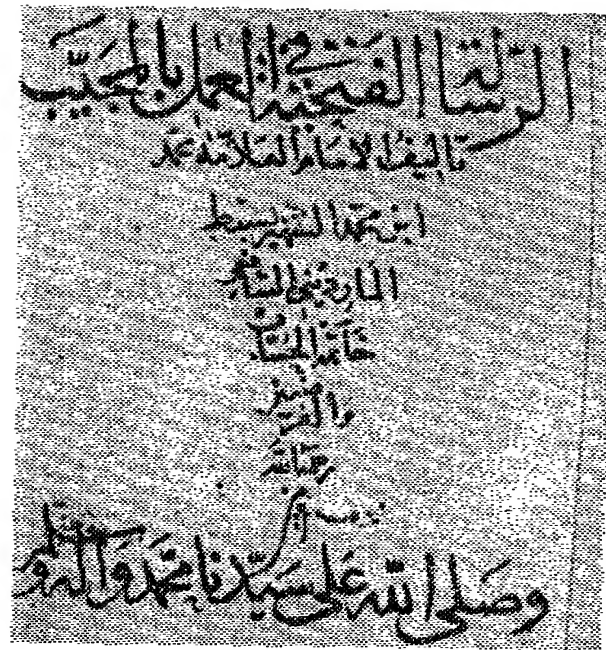 الرسالة الفتحية في العمل بالمجيب
تاليف الامام العلامة محمد
ابن محمد الشهير بسبط
المارديني الشافعي
خاتمة الحساب
والفرضيين
رحمنا الله
به امين
وصلى الله على سيدنا محمد وآله وصحبه وسلم